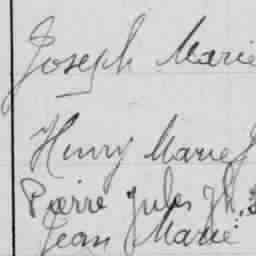 Joseph Marie
Henry Marie J
Pierre Jules Jh.
Jean Marie